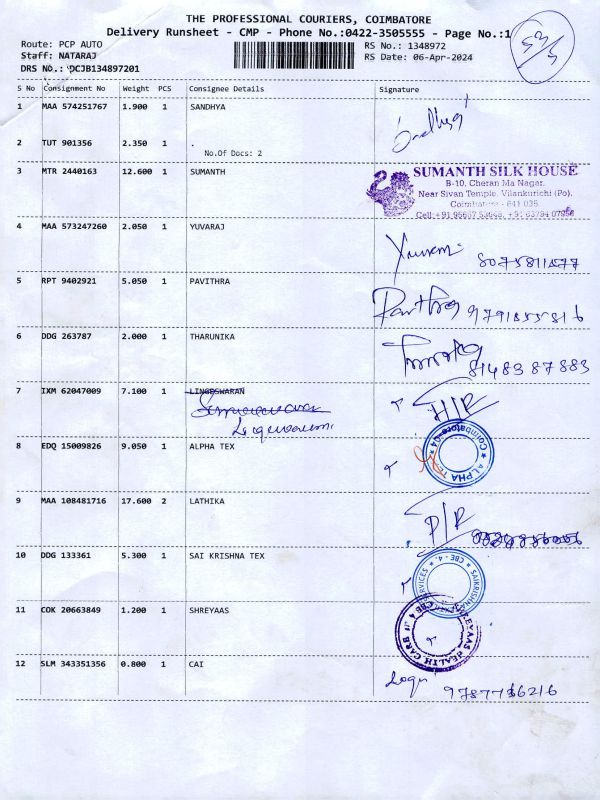 THE PROFESSIONAL COURIERS, COIMBATORE
Delivery Runsheet - CMP - Phone No.:0422-3505555 - Page No.:1
Route: PCP AUTO RS No.: 1348972
Staff: NATARAJ RS Date: 06-Apr-2024
DRS No.: DCJB134897201
S No Consignment No Weight PCS Consignee Details Signature
1 MAA 574251767 1.900 1 SANDHYA
Sandhya
2 TUT 901356 2.350 1 .
No.Of Docs: 2
3 MTR 2440163 12.600 1 SUMANTH
SUMANTH SILK HOUSE
B-10, Cheran Ma Nagar,
Near Sivan Temple, Vilankurichi (Po).
Coimbatore - 641 035.
4 MAA 573247260 2.050 1 YUVARAJ
8075811577
5 RPT 9402921 5.050 1 PAVITHRA
Pavithra 9791855816
6 DDG 263787 2.000 1 THARUNIKA
8148387883
7 IXM 62047009 7.100 1 LINGESWARAN
8 EDQ 15009826 9.050 1 ALPHA TEX
★ ALPHA TEX ★ Coimbatore-04
9 MAA 108481716 17.600 2 LATHIKA
P/R
10 DDG 133361 5.300 1 SAI KRISHNA TEX
11 COK 20663849 1.200 1 SHREYAAS
12 SLM 343351356 0.800 1 CAI
Logu 9787736216